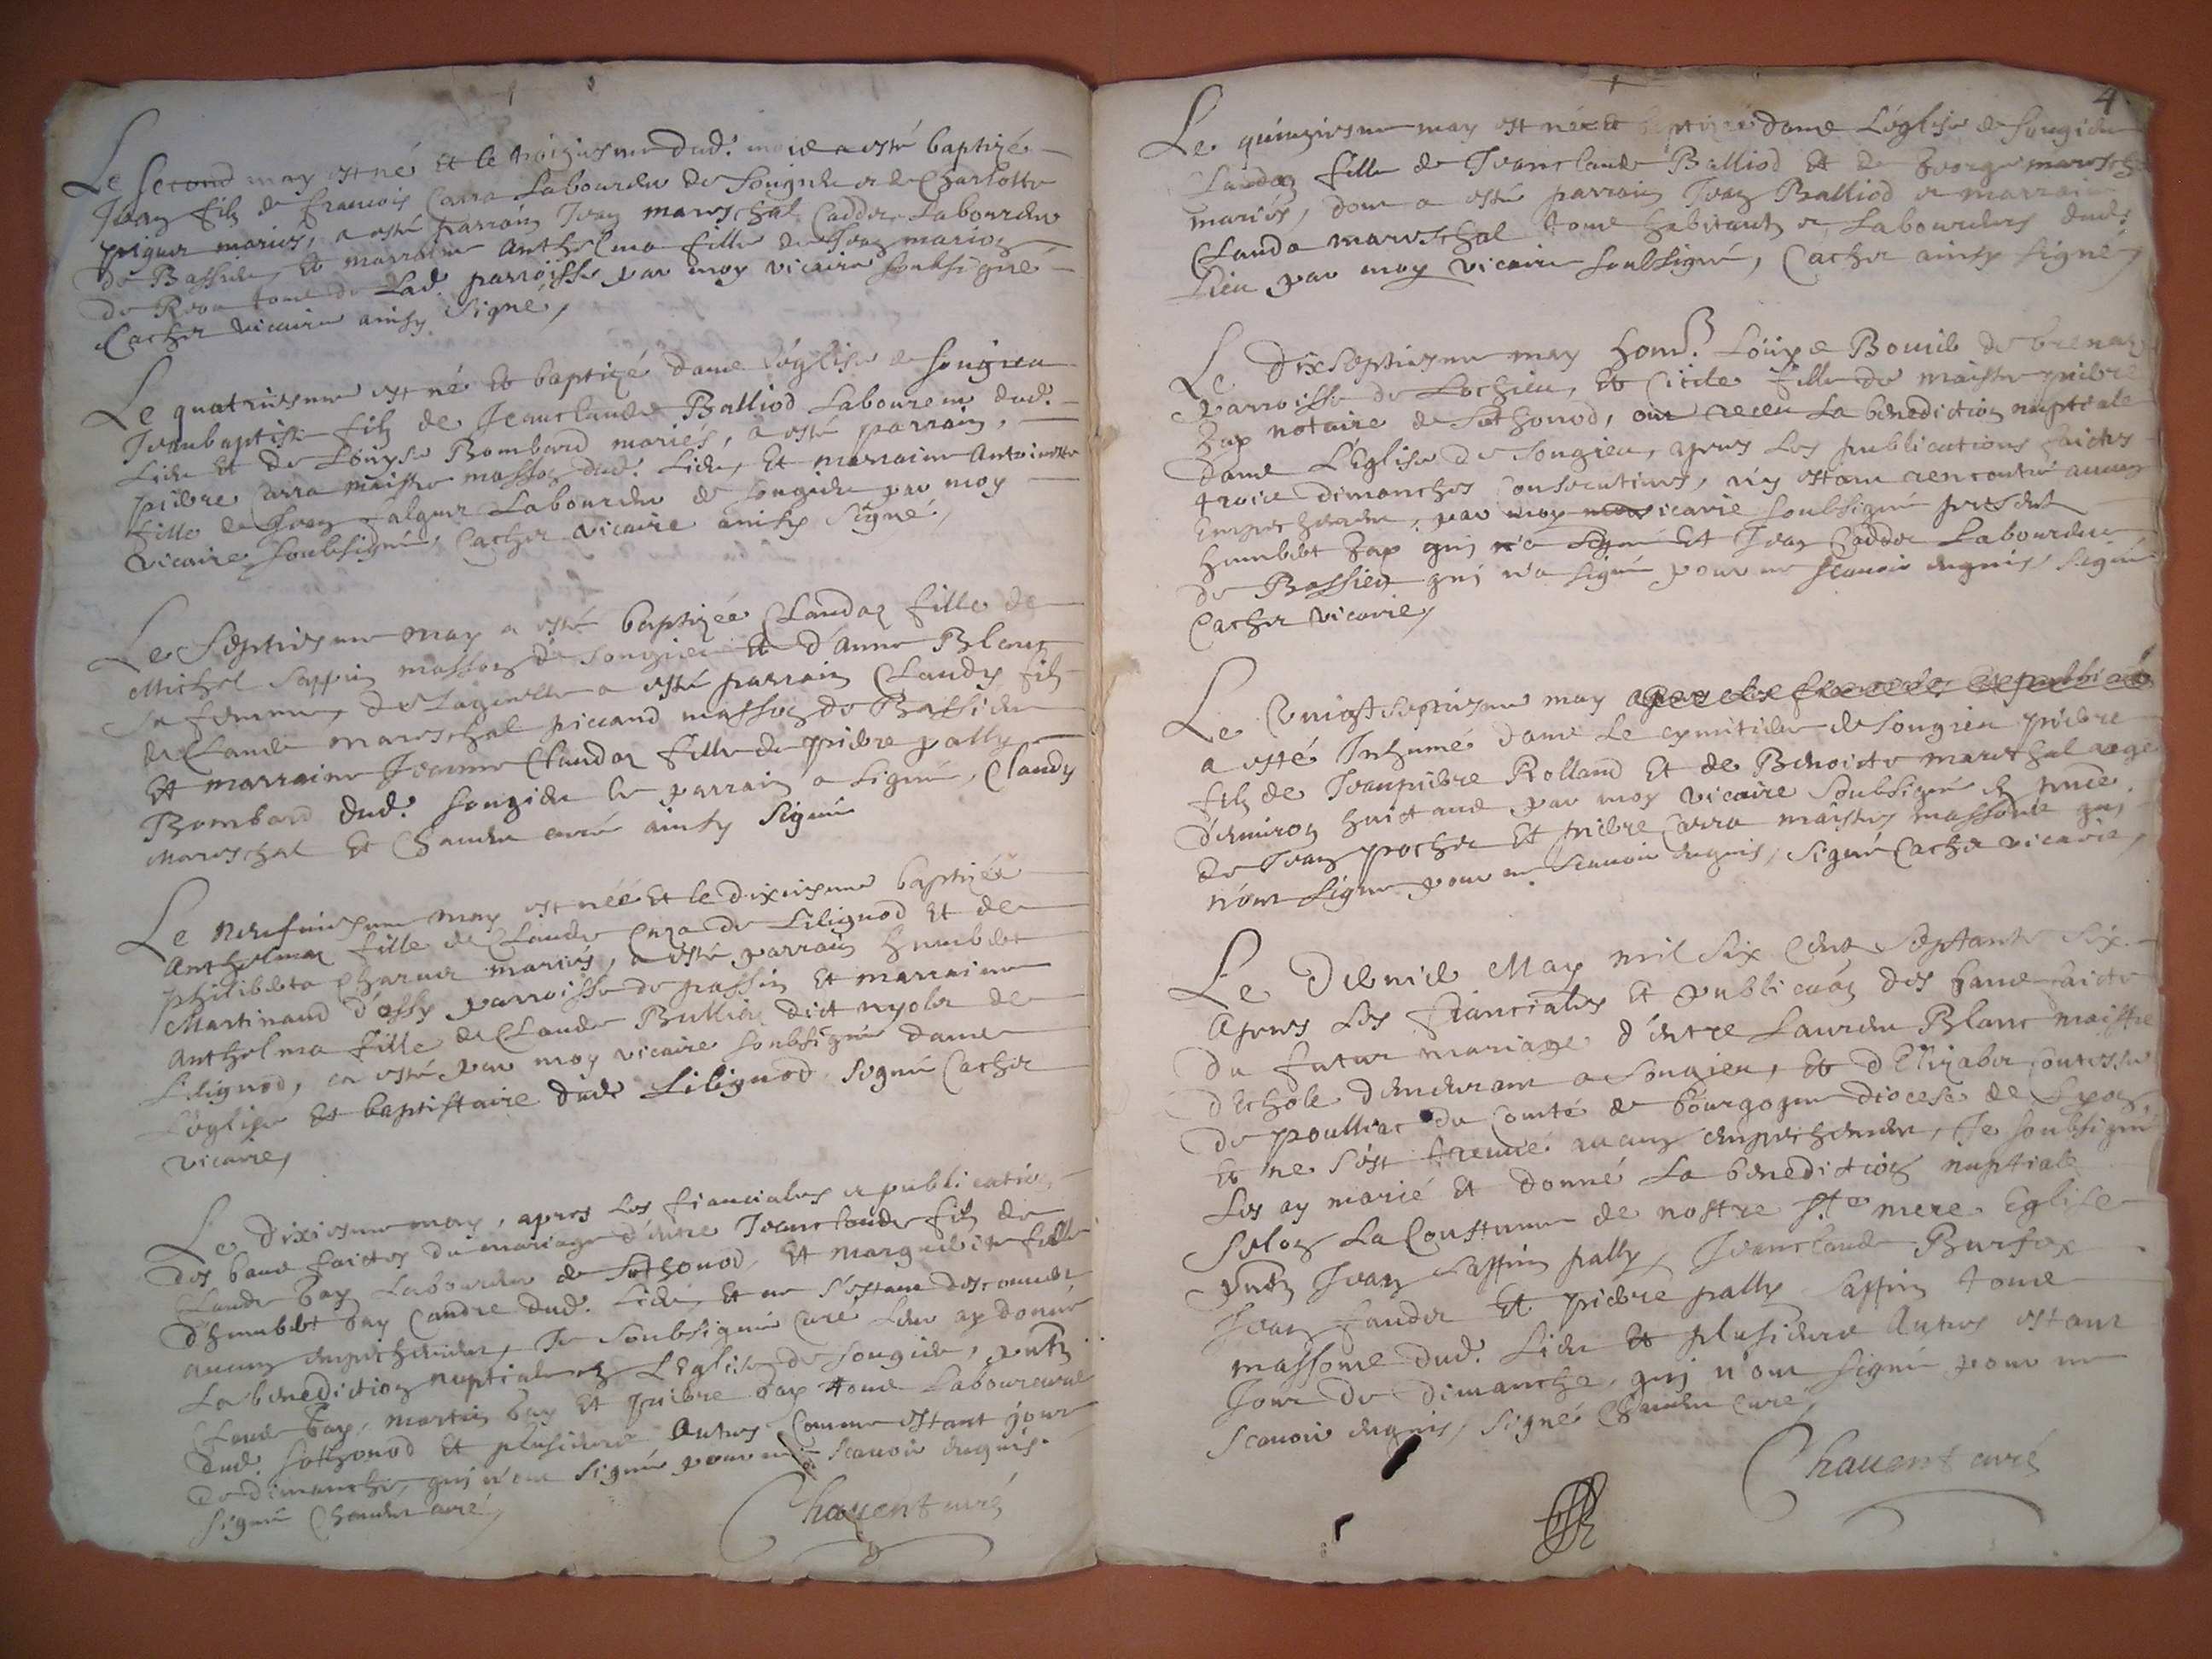 Le second may est né et le troiziesme dud. mois a esté baptizé
Jean filz de francois Carra Laboureur de Songieu et de Charlotte
mariés, a esté parrain Jean mareschal Cadder Laboureur
de Bassieu, Et marraine Anthelma fille de Jean marion
de tous de Lad. parroisse par moy vicaire soubsigné
Cacher vicaire ainsy signé,
Le quatriesme est né et baptizé dans l'église de songieu
Jeanbaptiste filz de Jeanclaude Balliod Laboureur dud.
Lieu Et de Louyse Bombard mariés, a esté parrain,
pierre Carra maistre masson dud. Lieu, Et marraine Antoinette
fille de Jean falquer Laboureur de songieu par moy
vicaire soubsigné, Cacher vicaire ainsy signé,
Le Septiesme may a esté baptizée Claudaz fille de
Michel Sappin masson de Songieu Et d'Anne Blanc
sa femme, a esté parrain Claudy filz
de Claude mareschal piccand masson de Bassieu
Et marraine Jeanne Claudaz fille de pierre pally
Bombard dud. songieu le parrain a signé, Claudy
Mareschal Et Chauent curé ainsy signé
Le neufuiesme may est néé Et le dixiesme baptizée
Anthelmaz fille de Claude de Lilignod Et de
philiberta Charuer mariés, a esté parrain humbert
Martinand d'ossy parroisse de passin Et marraine
Anthelma fille de Claude Bullier dict nyoler de
Lilignod, et esté par moy vicaire soubsigné dans
L'église Et baptistaire dud. Lilignod. signé Cacher
vicaire,
Le dixiesme may, apres les fiancialles et publication
des bans faictes du mariage d'entre Jeanclaude filz de
Claude bay Laboureur de Sothonod, Et marguerite fille
d'humbert bay Candre dud. Lieu, Et ne s'estant descouuer
aucun empechement, Je soubsigné Curé Leur ay donné
La benediction nuptiale en L'Eglise de songieu, pntz
Claude bay, martin bay Et pierre bay tous Laboureurs
dud. sothonod Et plusieurs Autres Comme estant jour
de dimanche, qui n'ont signé pour ne scauoir enquis.
signé Chauent curé,
Chauent curé
4
Le quinziesme may est néé et baptizée dans L'église de songieu
Claudaz fille de Jeanclaude Balliod Et de George maresch
mariés, dont a esté parrain Jean Balliod et marraine
Clauda mareschal tous habitants et Laboureurs dud.
Lieu par moy vicaire soubsigné, Cacher ainsy signé,
Le dixseptiesme may Louys Bouuier de brenaz
parroisse de Lochieu, Et Cicile fille de maistre pierre
Zap notaire de Sothonod, ont receu La benediction nuptiale
dans L'Eglise de Songieu, apres les publications faictes
troice dimanches Consecutiues, n'y estant rencontré aucun
Empechement, par moy vicaire soubsigné present
humbert Zap qui n'a signé Et Jean Cadder Laboureur
de Bassieu qui n'a signé pour ne scauoir enquis, signé
Cacher vicaire,
Le Vingtseptiesme may
a esté Inhumé dans Le cymitiere de songieu pierre
filz de Jeanpierre Rolland Et de Benoiste mareschal agé
d'enuiron huict ans par moy vicaire soubsigné En pnce
de Jean pocher Et pierre Carra maistres massons qui
n'ont signé pour ne scauoir enquis, signé Cacher vicaire,
Le Dernier May mil six Cens Septante Six
Apres Les fiancialles Et publicaon des bans faicte
du futur mariage d'entre Laurent Blanc maistre
d'Echole demeurant a Songieu, Et d'Elizabet Contesse
de poulliac du Comté de bourgogne diocese de Lyon
Et ne s'est treuué aucun empechement, Je soubsigné
Les ay marié Et donné La benediction nuptiale
selon La Coustume de nostre Ste mere Eglise
pntz Jean Sappin pally, Jeanclaude Burfox
Jean Et pierre pally Sappin tous
massons dud. Lieu Et plusieurs Autres estant
Jour de dimanche, qui n'ont signé pour ne
scauoir enquis, signé Chauent Curé,
Chauent curé